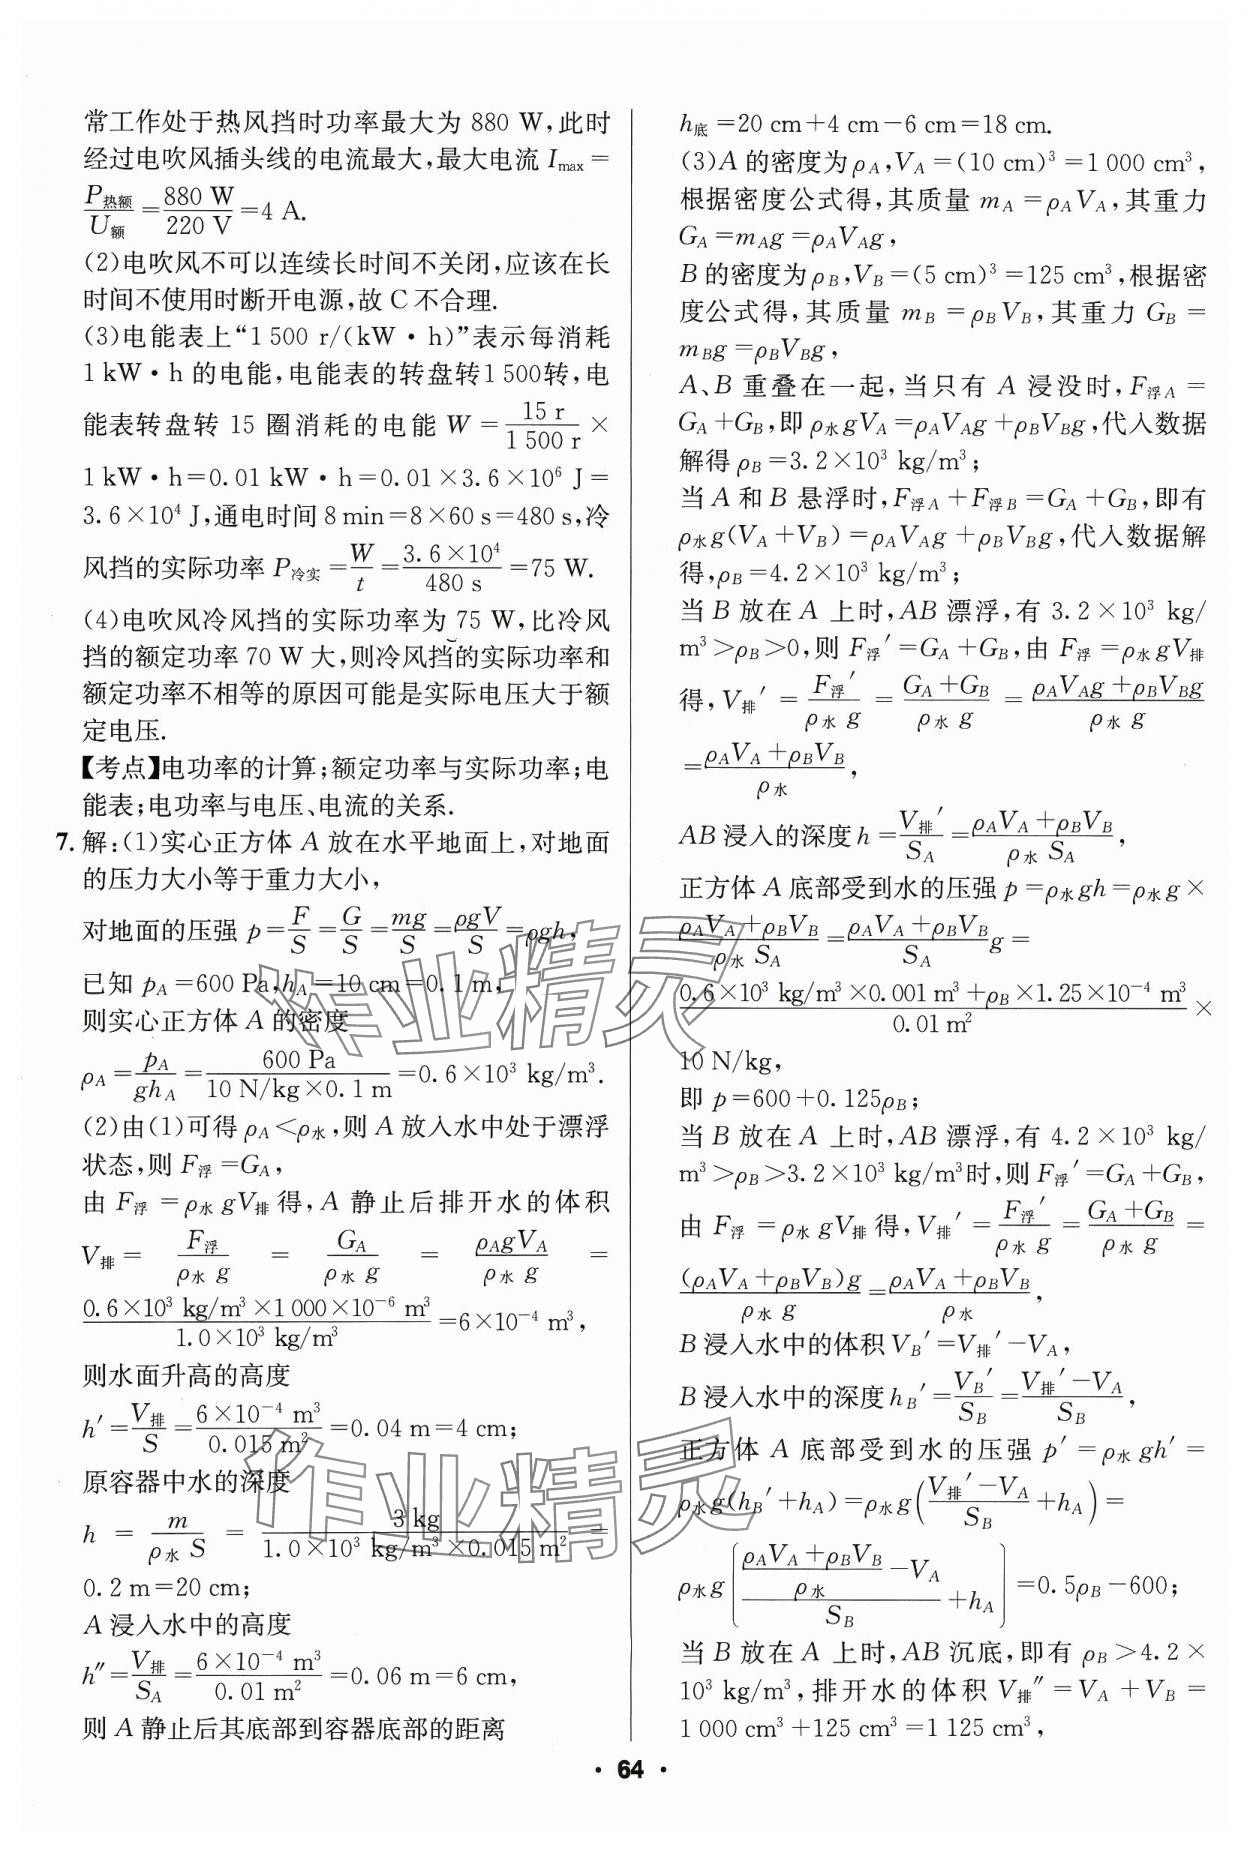 常工作处于热风挡时功率最大为 880 W,此时
经过电吹风插头线的电流最大,最大电流 I_max =
P_热额/U_额 = 880 W/220 V = 4 A.
(2)电吹风不可以连续长时间不关闭,应该在长
时间不使用时断开电源,故 C 不合理.
(3)电能表上“1 500 r/(kW·h)”表示每消耗
1 kW·h 的电能,电能表的转盘转1 500转,电
能表转盘转 15 圈消耗的电能 W = 15 r/1 500 r ×
1 kW·h=0.01 kW·h=0.01×3.6×10⁶ J=
3.6×10⁴ J,通电时间 8 min=8×60 s=480 s,冷
风挡的实际功率 P_冷实 = W/t = 3.6×10⁴/480 s = 75 W.
(4)电吹风冷风挡的实际功率为 75 W,比冷风
挡的额定功率 70 W 大,则冷风挡的实际功率和
额定功率不相等的原因可能是实际电压大于额
定电压.
【考点】电功率的计算;额定功率与实际功率;电
能表;电功率与电压、电流的关系.
7. 解:(1)实心正方体 A 放在水平地面上,对地面
的压力大小等于重力大小,
对地面的压强 p = F/S = G/S = mg/S = ρgV/S = ρgh,
已知 p_A=600 Pa,h_A=10 cm=0.1 m,
则实心正方体 A 的密度
ρ_A = p_A/gh_A = 600 Pa/10 N/kg×0.1 m = 0.6×10³ kg/m³.
(2)由(1)可得 ρ_A<ρ_水,则 A 放入水中处于漂浮
状态,则 F_浮=G_A,
由 F_浮 = ρ_水 gV_排 得,A 静止后排开水的体积
V_排 = F_浮/ρ_水 g = G_A/ρ_水 g = ρ_A gV_A/ρ_水 g =
0.6×10³ kg/m³×1 000×10⁻⁶ m³/1.0×10³ kg/m³ = 6×10⁻⁴ m³,
则水面升高的高度
h′ = V_排/S = 6×10⁻⁴ m³/0.015 m² = 0.04 m=4 cm;
原容器中水的深度
h = m/ρ_水 S = 3 kg/1.0×10³ kg/m³×0.015 m² =
0.2 m=20 cm;
A 浸入水中的高度
h″ = V_排/S_A = 6×10⁻⁴ m³/0.01 m² = 0.06 m=6 cm,
则 A 静止后其底部到容器底部的距离
h_底 =20 cm+4 cm-6 cm=18 cm.
(3)A 的密度为 ρ_A,V_A=(10 cm)³=1 000 cm³,
根据密度公式得,其质量 m_A=ρ_A V_A,其重力
G_A=m_A g=ρ_A V_A g,
B 的密度为 ρ_B,V_B=(5 cm)³=125 cm³,根据密
度公式得,其质量 m_B=ρ_B V_B,其重力 G_B=
m_B g=ρ_B V_B g,
A、B 重叠在一起,当只有 A 浸没时,F_浮A=
G_A+G_B,即 ρ_水 gV_A=ρ_A V_A g+ρ_B V_B g,代入数据
解得 ρ_B=3.2×10³ kg/m³;
当 A 和 B 悬浮时,F_浮A+F_浮B=G_A+G_B,即有
ρ_水 g(V_A+V_B)=ρ_A V_A g+ρ_B V_B g,代入数据解
得,ρ_B=4.2×10³ kg/m³;
当 B 放在 A 上时,AB 漂浮,有 3.2×10³ kg/
m³>ρ_B>0,则 F_浮′=G_A+G_B,由 F_浮=ρ_水 gV_排
得,V_排′ = F_浮′/ρ_水 g = G_A+G_B/ρ_水 g = ρ_A V_A g+ρ_B V_B g/ρ_水 g
= ρ_A V_A+ρ_B V_B/ρ_水,
AB 浸入的深度 h = V_排′/S_A = ρ_A V_A+ρ_B V_B/ρ_水 S_A,
正方体 A 底部受到水的压强 p=ρ_水 gh=ρ_水 g×
ρ_A V_A+ρ_B V_B/ρ_水 S_A = ρ_A V_A+ρ_B V_B/S_A g=
0.6×10³ kg/m³×0.001 m³+ρ_B×1.25×10⁻⁴ m³/0.01 m² ×
10 N/kg,
即 p=600+0.125ρ_B;
当 B 放在 A 上时,AB 漂浮,有 4.2×10³ kg/
m³>ρ_B>3.2×10³ kg/m³时,则 F_浮′=G_A+G_B,
由 F_浮 = ρ_水 gV_排 得,V_排′ = F_浮′/ρ_水 g = G_A+G_B/ρ_水 g =
(ρ_A V_A+ρ_B V_B)g/ρ_水 g = ρ_A V_A+ρ_B V_B/ρ_水,
B 浸入水中的体积 V_B′=V_排′-V_A,
B 浸入水中的深度 h_B′ = V_B′/S_B = V_排′-V_A/S_B,
正方体 A 底部受到水的压强 p′=ρ_水 gh′=
ρ_水 g(h_B′+h_A)=ρ_水 g(V_排′-V_A/S_B +h_A)=
ρ_水 g((ρ_A V_A+ρ_B V_B/ρ_水 -V_A)/S_B +h_A)=0.5ρ_B-600;
当 B 放在 A 上时,AB 沉底,即有 ρ_B>4.2×
10³ kg/m³,排开水的体积 V_排″=V_A+V_B=
1 000 cm³+125 cm³=1 125 cm³,
· 64 ·
作业精灵
作业精灵